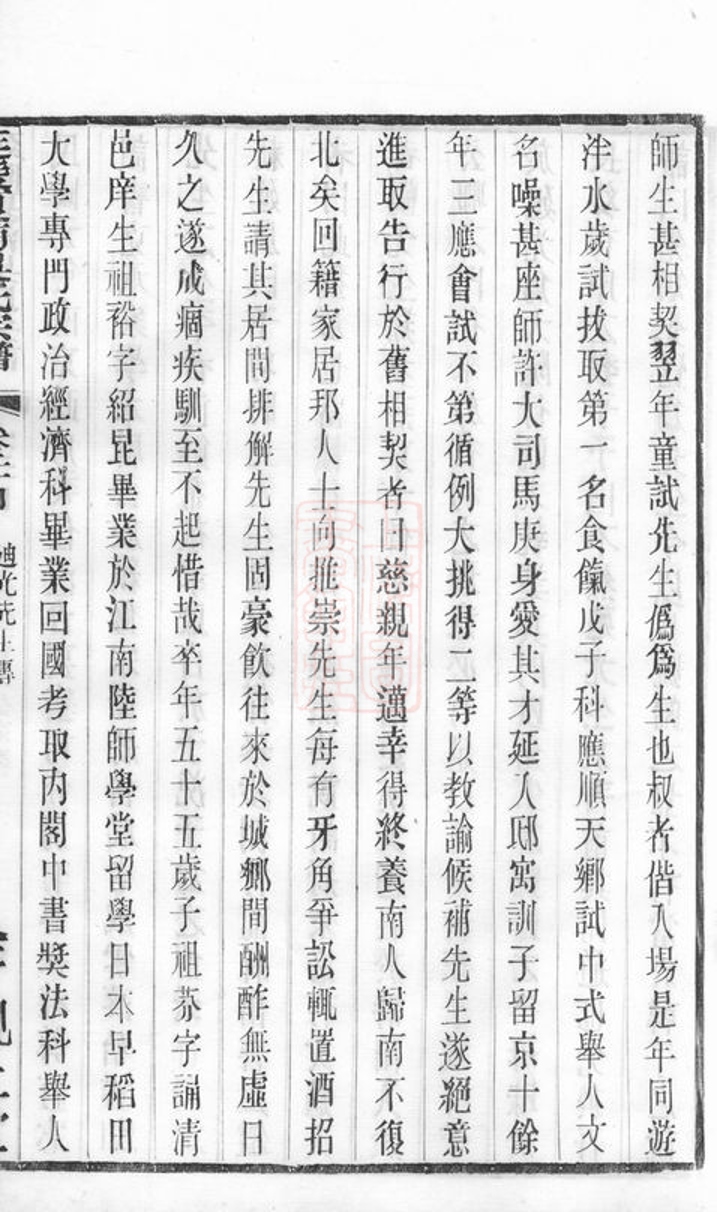 師生甚相契翌年童試先生僞爲生也叔者偕入場是年同遊
泮水歲試拔取第一名食餼戊子科應順天鄉試中式舉人文
名噪甚座師許大司馬庚身愛其才延入邸寓訓子留京十餘
年三應會試不第循例大挑得二等以教諭候補先生遂絕意
進取告行於舊相契者曰慈親年邁幸得終養南人歸南不復
北矣回籍家居邦人士向推崇先生每有牙角爭訟輒置酒招
先生請其居間排解先生固豪飲往來於城鄉間酬酢無虛日
久之遂成痼疾馴至不起惜哉卒年五十五歲子祖芬字誦清
邑庠生祖裕字紹昆畢業於江南陸師學堂留學日本早稻田
大學專門政治經濟科畢業回國考取內閣中書獎法科舉人
迪光先生傳